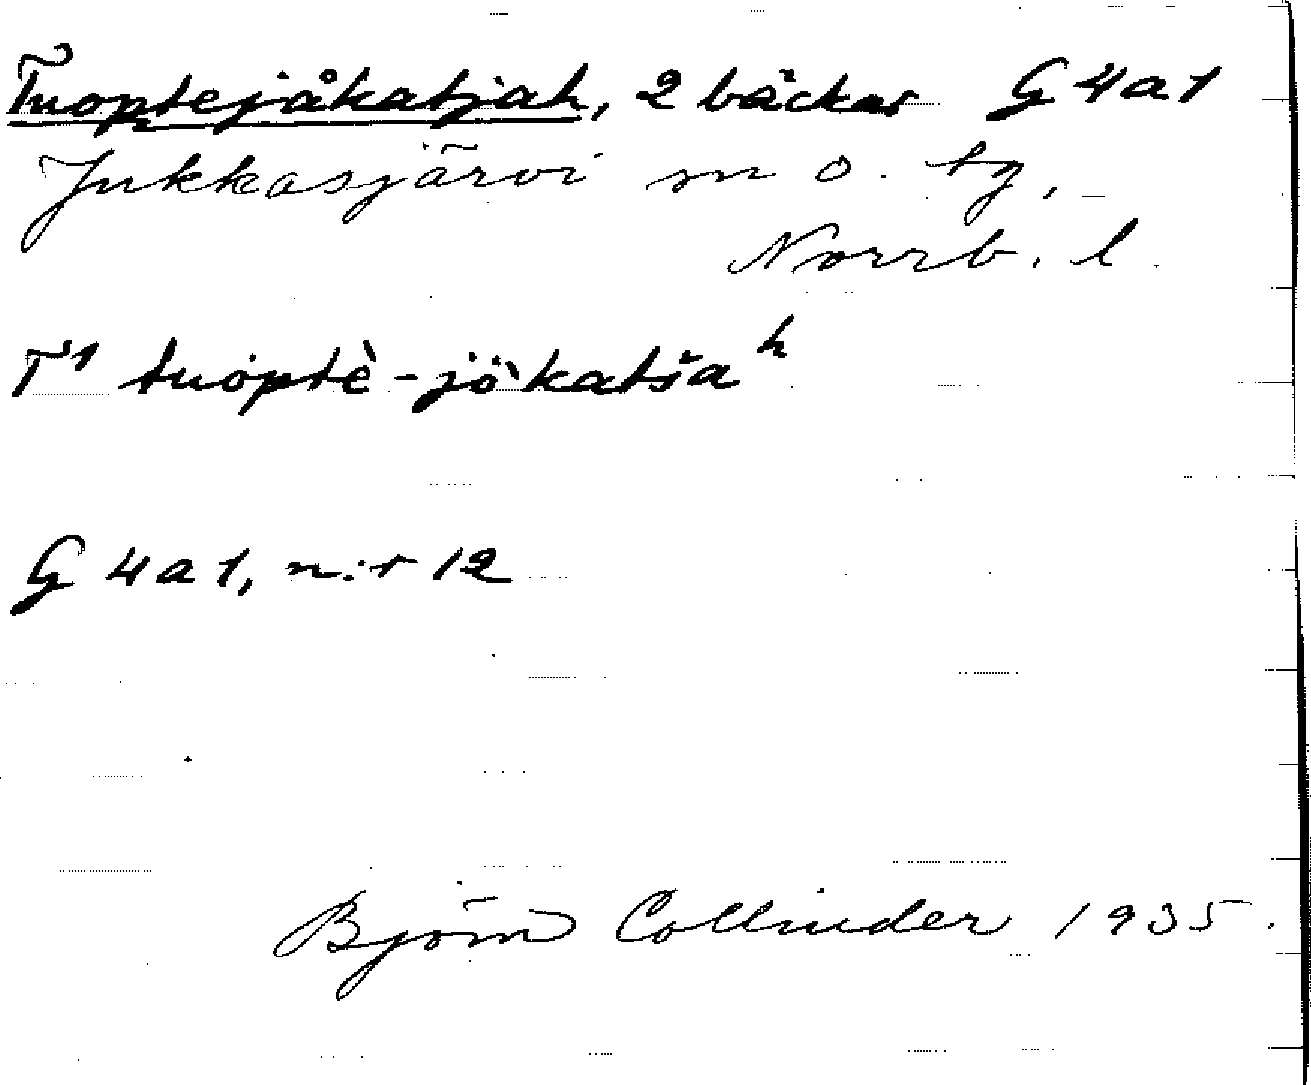 Tuoptejåkatjah, 2 bäckar G 4a1
Jukkasjärvi sn o. tg,
Norrb. l.
T1 tuoptè-jò̈katšaʰ
G 4a1, n:r 12
Björn Collinder 1935.